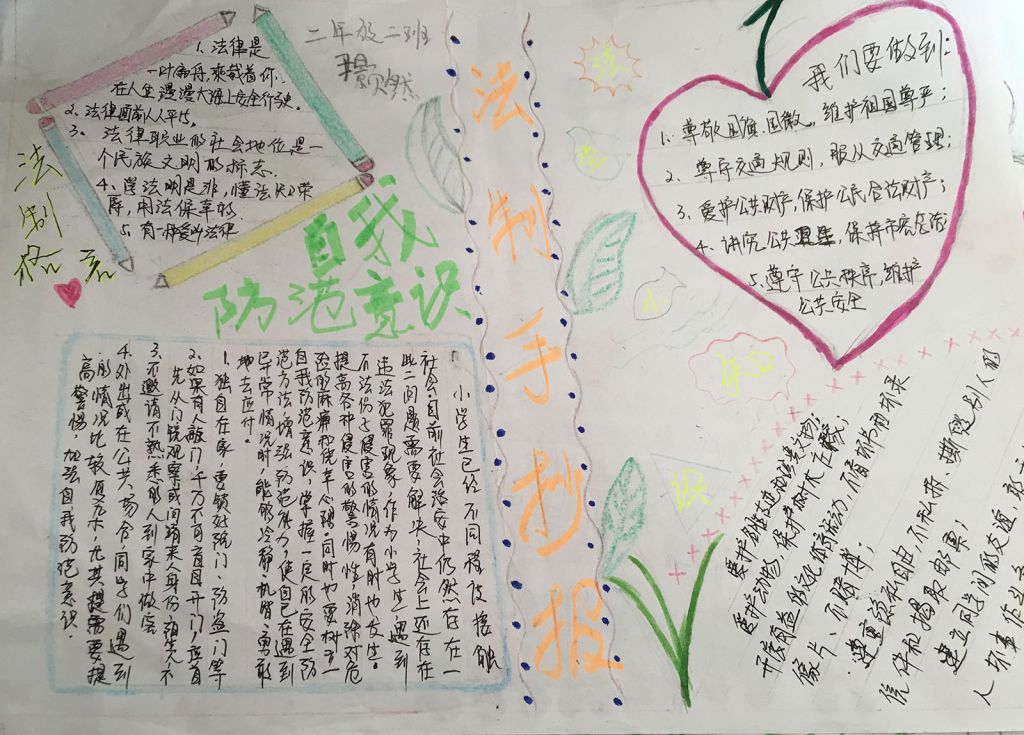 二年级二班
法制格言
1. 法律是
一叶扁舟,来载着你,
在人生漫漫大海上安全行驶。
2. 法律面前人人平等。
3. 法律职业的社会地位是一
个民族文明的标志。
4、学法明是非,懂法知荣
辱,用法保幸福。
5. 有一种爱叫法律
自我
防范意识
小学生已经不同程度接触
社会,目前社会治安中仍然存在一
些问题需要解决,社会上还存在
违法犯罪现象,作为小学生遇到
不法伤害侵害的情况有时也发生。
提高各种侵害的警惕性,消除对危
险的麻痹和侥幸心理,同时也要树立
自我防范意识,掌握一定的安全防
范方法,增强防范能力,使自己在遇到
异常情况时,能够冷静、机智、勇敢
地去应付。
1. 独自在家,要锁好院门、防盗门等
2. 如果有人敲门,千万不可盲目开门,应首
先从门镜观察或问清来人身份,
3. 不邀请不熟悉的人到家中做客
4. 外出或在公共场合同学们遇到
的情况比较复杂,尤其需要提
高警惕,加强自我防范意识。
法制手抄报
法
意
识
我们要做到:
1. 尊敬国旗、国徽,维护祖国尊严;
2. 遵守交通规则,服从交通管理;
3. 爱护公共财产,保护公民合法财产;
4. 讲究公共卫生,保持市容整洁
5. 遵守公共秩序,维护
公共安全
爱护动物,保护树木庄稼;
开展有益的文体活动,不看
像片、不赌博;
遵重通信自由,不私拆
信件和揭取邮票;
建立同学间的友谊,